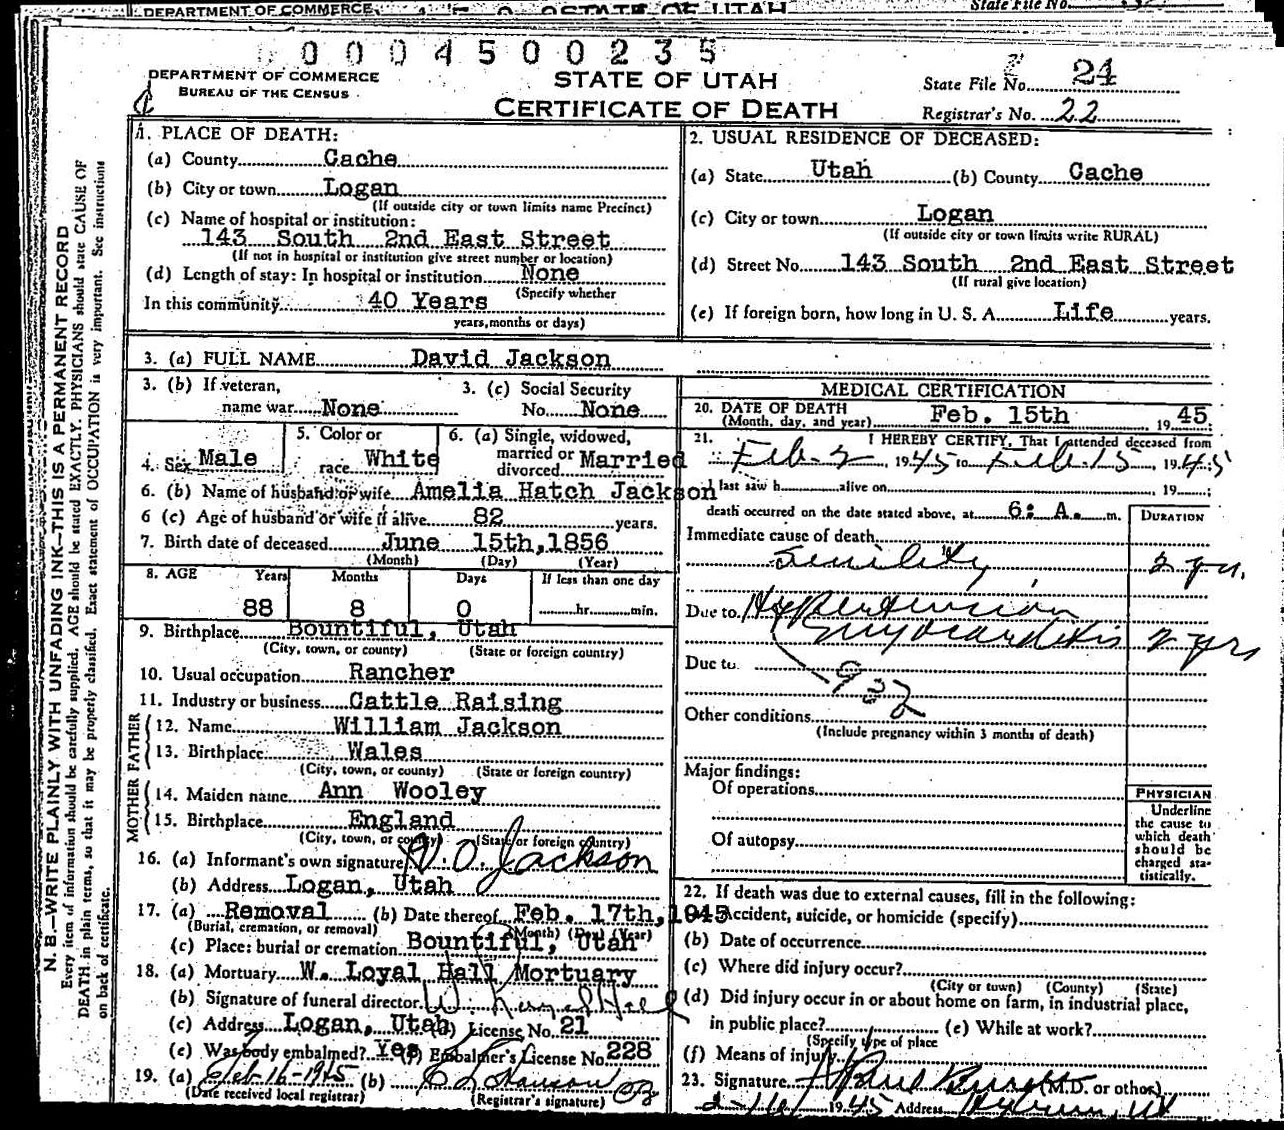 DEPARTMENT OF COMMERCE STATE OF UTAH State File No.
0 0 0 4 5 0 0 2 3 5
DEPARTMENT OF COMMERCE
BUREAU OF THE CENSUS
STATE OF UTAH
CERTIFICATE OF DEATH
State File No. 24
Registrar's No. 22
N. B.—WRITE PLAINLY WITH UNFADING INK—THIS IS A PERMANENT RECORD
Every item of information should be carefully supplied. AGE should be stated EXACTLY. PHYSICIANS should state CAUSE OF
DEATH in plain terms, so that it may be properly classified. Exact statement of OCCUPATION is very important. See instructions
on back of certificate.
1. PLACE OF DEATH:
(a) County Cache
(b) City or town Logan
(If outside city or town limits name Precinct)
(c) Name of hospital or institution:
143 South 2nd East Street
(If not in hospital or institution give street number or location)
(d) Length of stay: In hospital or institution None
(Specify whether
In this community 40 Years
years, months or days)
2. USUAL RESIDENCE OF DECEASED:
(a) State Utah (b) County Cache
(c) City or town Logan
(If outside city or town limits write RURAL)
(d) Street No. 143 South 2nd East Street
(If rural give location)
(e) If foreign born, how long in U. S. A. Life years.
3. (a) FULL NAME David Jackson
3. (b) If veteran, name war None
3. (c) Social Security No. None
4. Sex Male
5. Color or race White
6. (a) Single, widowed, married or divorced Married
6. (b) Name of husband or wife Amelia Hatch Jackson
6 (c) Age of husband or wife if alive 82 years.
7. Birth date of deceased June 15th, 1856
(Month) (Day) (Year)
8. AGE Years Months Days If less than one day
88 8 0 hr. min.
9. Birthplace Bountiful, Utah
(City, town, or county) (State or foreign country)
10. Usual occupation Rancher
11. Industry or business Cattle Raising
FATHER
12. Name William Jackson
13. Birthplace Wales
(City, town, or county) (State or foreign country)
MOTHER
14. Maiden name Ann Wooley
15. Birthplace England
(City, town, or county) (State or foreign country)
16. (a) Informant's own signature O. Jackson
(b) Address Logan, Utah
17. (a) Removal (b) Date thereof Feb. 17th, 1945
(Burial, cremation, or removal) (Month) (Day) (Year)
(c) Place: burial or cremation Bountiful, Utah
18. (a) Mortuary W. Loyal Hall Mortuary
(b) Signature of funeral director W. Loyal Hall
(c) Address Logan, Utah (d) License No. 21
(e) Was body embalmed? Yes (f) Embalmer's License No 228
19. (a) Feb-16-1945 (b)
(Date received local registrar) (Registrar's signature)
MEDICAL CERTIFICATION
20. DATE OF DEATH Feb. 15th 1945
(Month, day, and year)
21. I HEREBY CERTIFY, That I attended deceased from
Feb. 2, 1945 to Feb. 15, 1945
I last saw h alive on 19 ;
death occurred on the date stated above, at 6: A. m.
DURATION
Immediate cause of death
Senility, 2 yrs.
Due to Hypertension
myocarditis 2 yrs
Due to
932
Other conditions
(Include pregnancy within 3 months of death)
Major findings:
Of operations
Of autopsy
PHYSICIAN
Underline
the cause to
which death
should be
charged sta-
tistically.
22. If death was due to external causes, fill in the following:
(a) Accident, suicide, or homicide (specify)
(b) Date of occurrence
(c) Where did injury occur?
(City or town) (County) (State)
(d) Did injury occur in or about home on farm, in industrial place,
in public place? (e) While at work?
(Specify type of place
(f) Means of injury
23. Signature (M.D. or other)
2-16 1945 Address Hyrum, Ut